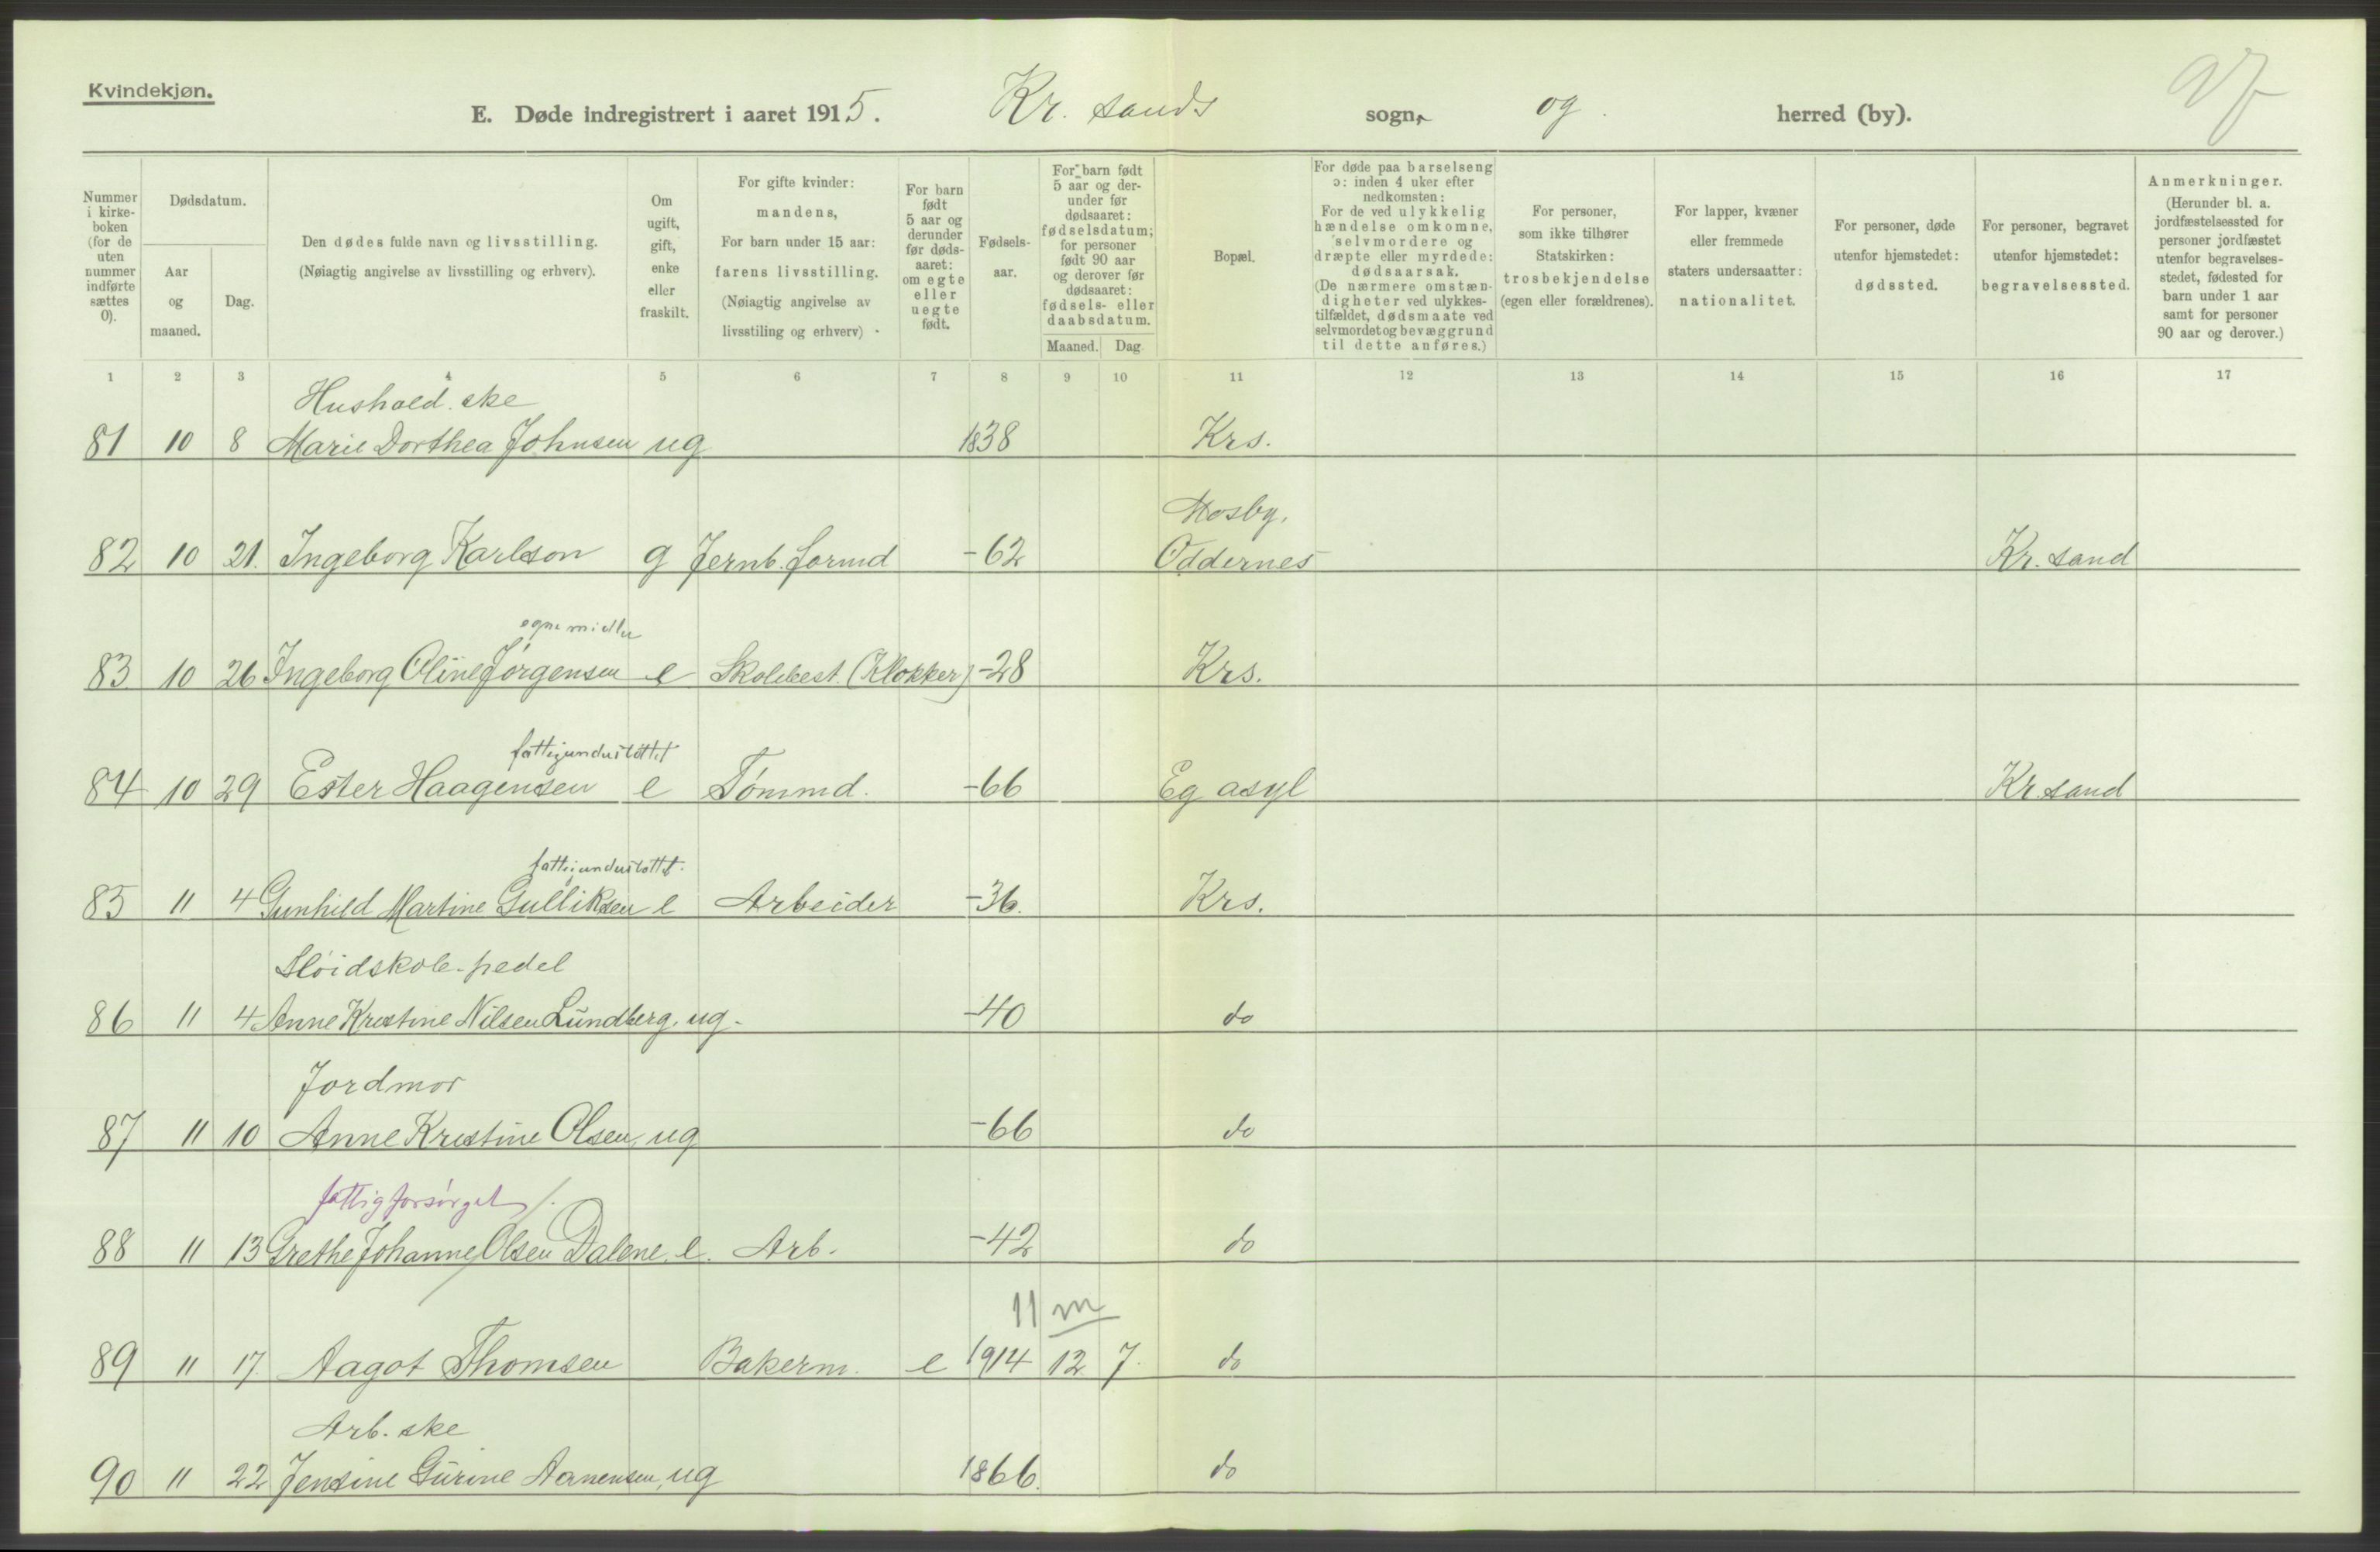 Kvindekjøn.
E. Døde indregistrert i aaret 1915. Kr. sands sogn, og herred (by).
Nummer i kirkeboken (for de uten nummer indførte sættes 0).
Dødsdatum.
Aar og maaned.
Dag.
Den dødes fulde navn og livsstilling.
(Nøiagtig angivelse av livsstilling og erhverv).
Om ugift, gift, enke eller fraskilt.
For gifte kvinder: mandens,
For barn under 15 aar: farens livsstilling.
(Nøiagtig angivelse av livsstiling og erhverv)
For barn født 5 aar og derunder før dødsaaret: om egte eller uegte født.
Fødselsaar.
For barn født 5 aar og derunder før dødsaaret: fødselsdatum; for personer født 90 aar og derover før dødsaaret: fødsels- eller daabsdatum.
Maaned. Dag.
Bopæl.
For døde paa barselseng ɔ: inden 4 uker efter nedkomsten:
For de ved ulykkelig hændelse omkomne, selvmordere og dræpte eller myrdede: dødsaarsak.
(De nærmere omstændigheter ved ulykkestilfældet, dødsmaate ved selvmordet og bevæggrund til dette anføres.)
For personer, som ikke tilhører Statskirken: trosbekjendelse (egen eller forældrenes).
For lapper, kvæner eller fremmede staters undersaatter: nationalitet.
For personer, døde utenfor hjemstedet: dødssted.
For personer, begravet utenfor hjemstedet: begravelsessted.
Anmerkninger.
(Herunder bl. a. jordfæstelsessted for personer jordfæstet utenfor begravelsesstedet, fødested for barn under 1 aar samt for personer 90 aar og derover.)
1 2 3 4 5 6 7 8 9 10 11 12 13 14 15 16 17
Hushold.ske
81 10 8 Marie Dorthea Johnsen ug 1838 Krs.
Mosby,
82 10 21. Ingeborg Karlson g Jernb.formd -62 Oddernes Kr. sand
egne midler
83 10 26 Ingeborg Oline Jørgensen e Skolebest. (Klokker) -28 Krs.
fattigunderstøttet
84 10 29 Ester Haagensen e Tømmd. -66 Eg asyl Kr. sand
fattigunderstøttet.
85 11 4 Gunhild Martine Gulliksen e Arbeider -36. Krs.
Sløidskole-pedel
86 11 4 Anne Kristine Nilsen Lundberg, ug. -40 do
Jordmor
87 11 10 Anne Kristine Olsen, ug -66 do
fattigforsørget /.
88 11 13 Grethe Johanne Olsen Dalene. e. Arb. -42 do
11 m
89 11 17. Aagot Thomsen Bakerm. e 1914 12 7. do
Arb.ske
90 11 22 Jensine Gurine Aanensen, ug 1866. do